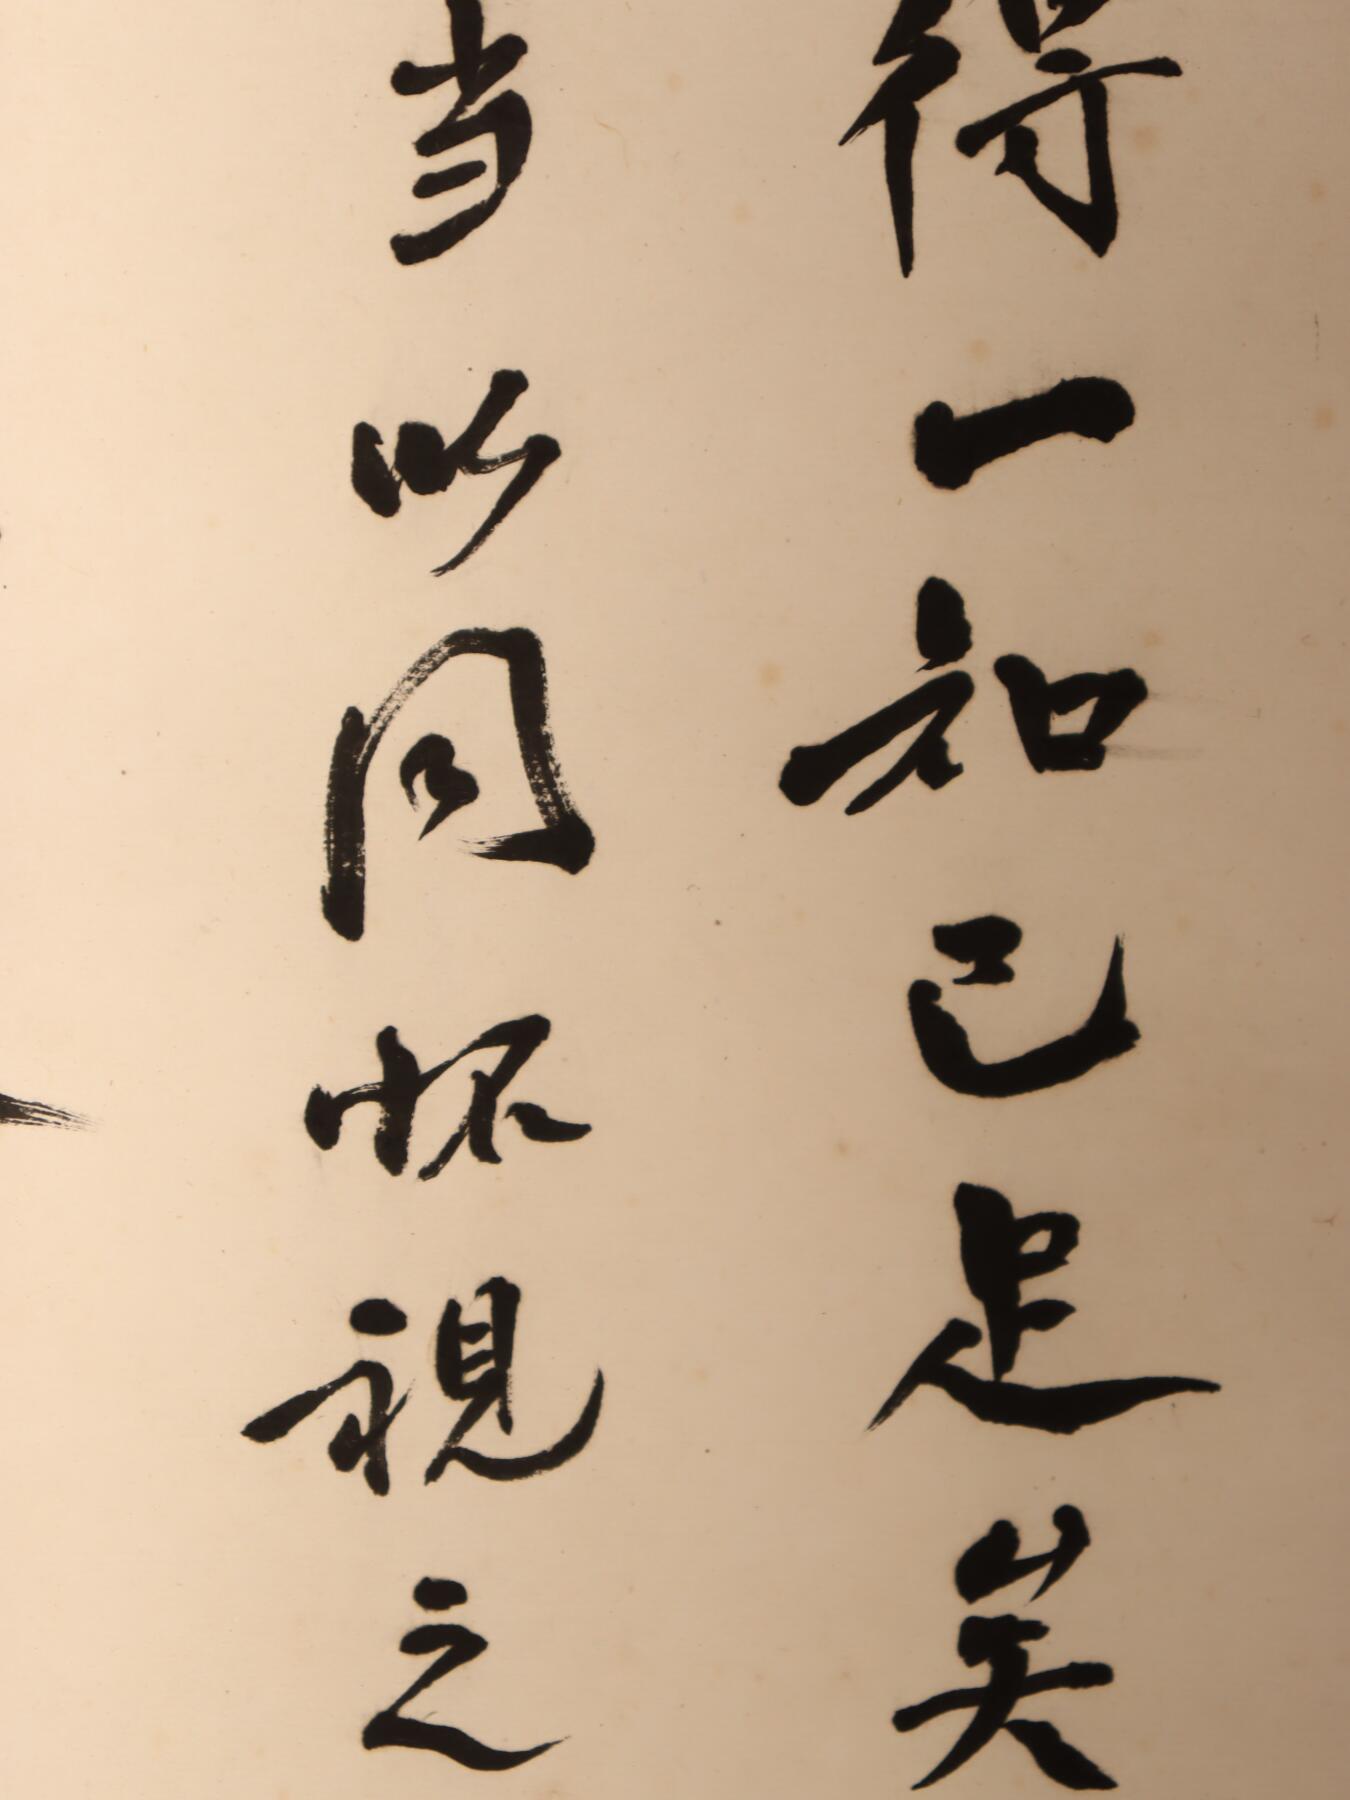 得一知己足矣
当以同怀視之